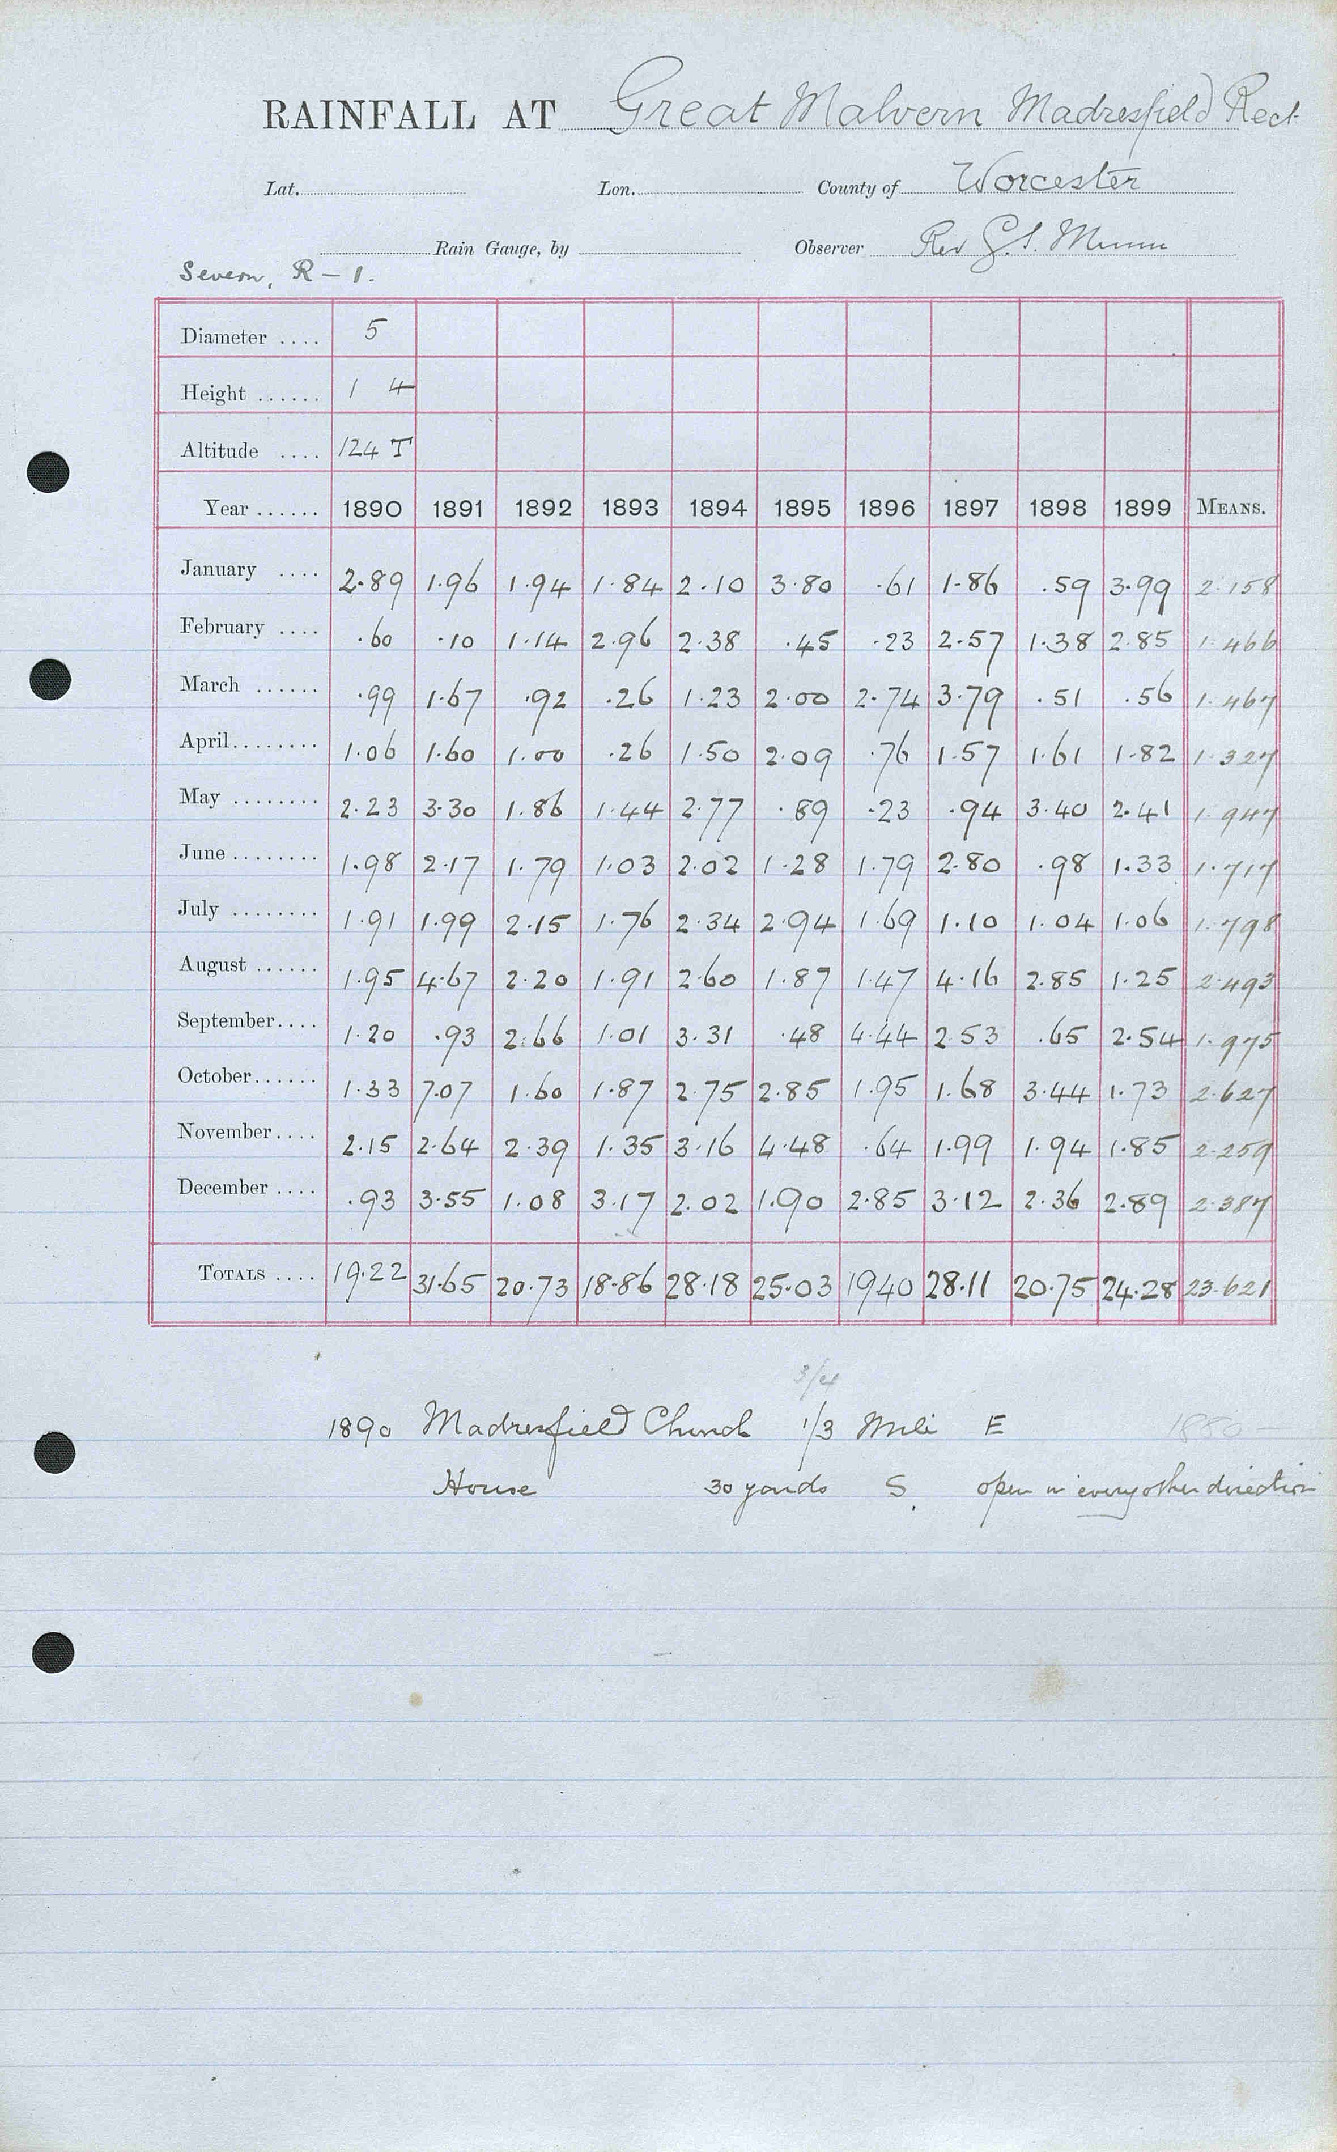 RAINFALL AT Great Malvern Madresfield Rect
Lat. Lon. County of Worcester
Rain Gauge, by Observer Rev G.S. Munn
Severn, R – 1.
Diameter .... 5
Height ...... 1 4
Altitude .... 124 T
Year ...... 1890 1891 1892 1893 1894 1895 1896 1897 1898 1899 MEANS.
January .... 2.89 1.96 1.94 1.84 2.10 3.80 .61 1.86 .59 3.99 2.158
February .... .60 .10 1.14 2.96 2.38 .45 .23 2.57 1.38 2.85 1.466
March ...... .99 1.67 .92 .26 1.23 2.00 2.74 3.79 .51 .56 1.467
April ........ 1.06 1.60 1.00 .26 1.50 2.09 .76 1.57 1.61 1.82 1.327
May ........ 2.23 3.30 1.86 1.44 2.77 .89 .23 .94 3.40 2.41 1.947
June ........ 1.98 2.17 1.79 1.03 2.02 1.28 1.79 2.80 .98 1.33 1.717
July ........ 1.91 1.99 2.15 1.76 2.34 2.94 1.69 1.10 1.04 1.06 1.798
August ...... 1.95 4.67 2.20 1.91 2.60 1.87 1.47 4.16 2.85 1.25 2.493
September .... 1.20 .93 2.66 1.01 3.31 .48 4.44 2.53 .65 2.54 1.975
October ...... 1.33 7.07 1.60 1.87 2.75 2.85 1.95 1.68 3.44 1.73 2.627
November .... 2.15 2.64 2.39 1.35 3.16 4.48 .64 1.99 1.94 1.85 2.259
December .... .93 3.55 1.08 3.17 2.02 1.90 2.85 3.12 2.36 2.89 2.387
TOTALS .... 19.22 31.65 20.73 18.86 28.18 25.03 1940 28.11 20.75 24.28 23.621
3/4
1890 Madresfield Church 1/3 Mile E 1880 –
House 30 yards S. open in every other direction